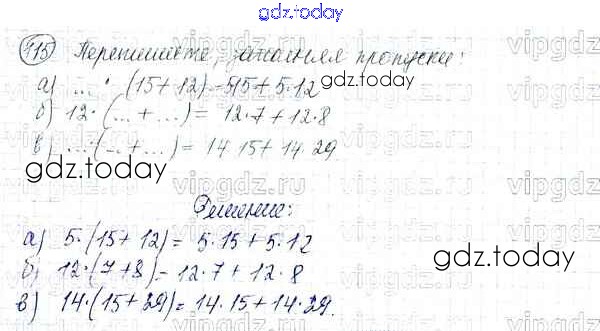 gdz.today
115 Перепишите, заполняя пропуски:
а) ... · (15 + 12) = 5·15 + 5·12
gdz.today
б) 12 · (... + ...) = 12·7 + 12·8
в) ... · (... + ...) = 14·15 + 14·29.
gdz.today
vipgdz.ru
Решение:
а) 5·(15 + 12) = 5·15 + 5·12
б) 12·(7 + 8) = 12·7 + 12·8
gdz.today
в) 14·(15 + 29) = 14·15 + 14·29.